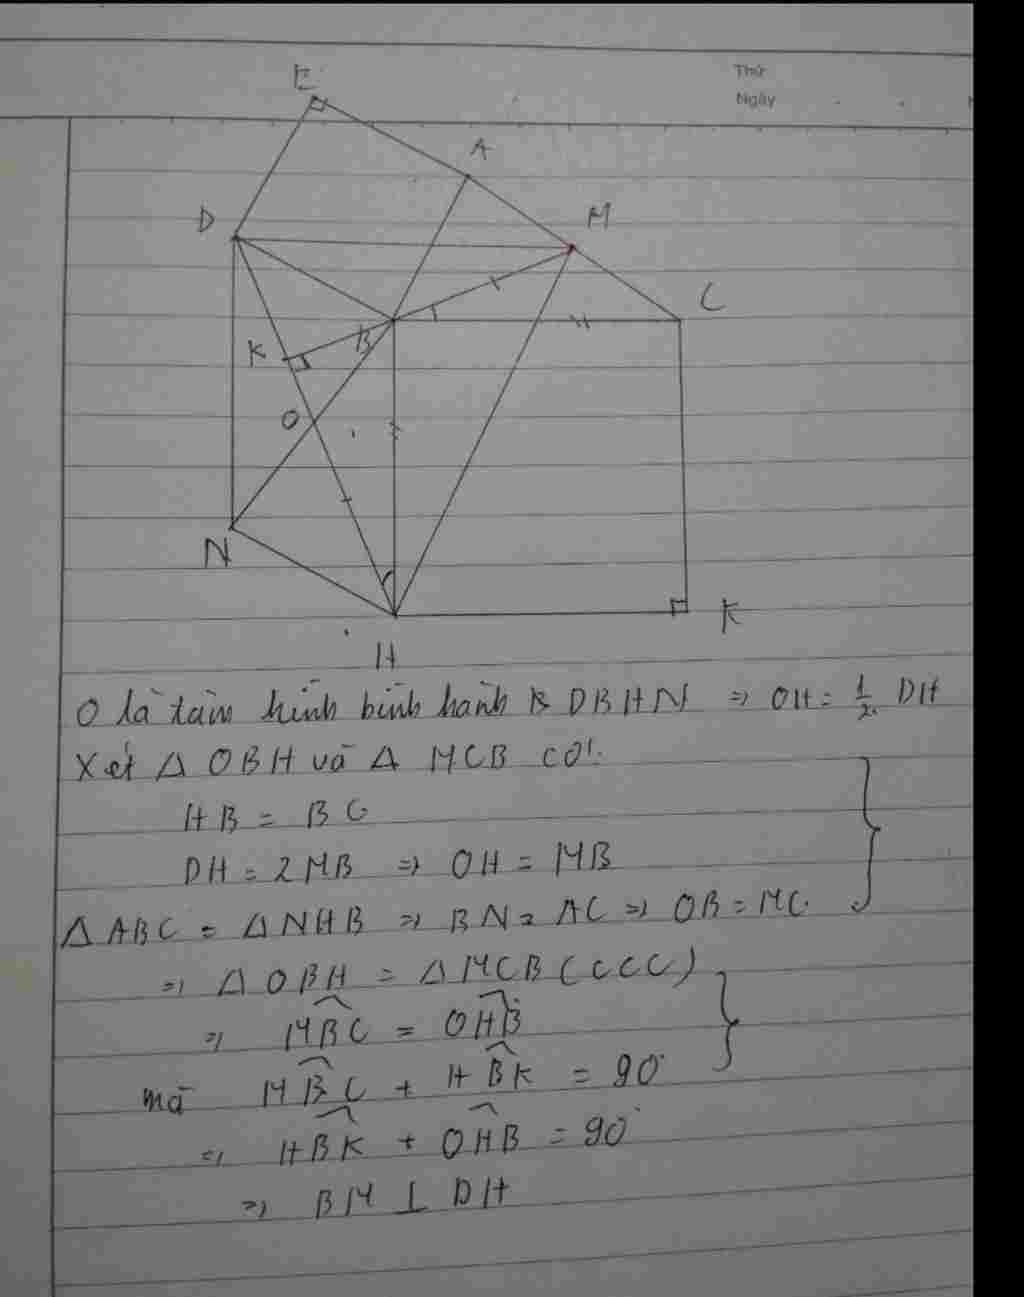 Thứ
Ngày
E
A
D
M
C
K
B
O
N
K
H
O là tâm hình bình hành DBHN => OH = 1/2 DH
Xét Δ OBH và Δ MCB có:
HB = BC
DH = 2MB => OH = MB
Δ ABC = Δ NHB => BN = AC => OB = MC
=> Δ OBH = Δ MCB (ccc)
=> MBC = OHB
mà MBC + HBK = 90°
=> HBK + OHB = 90°
=> BM ⊥ DH